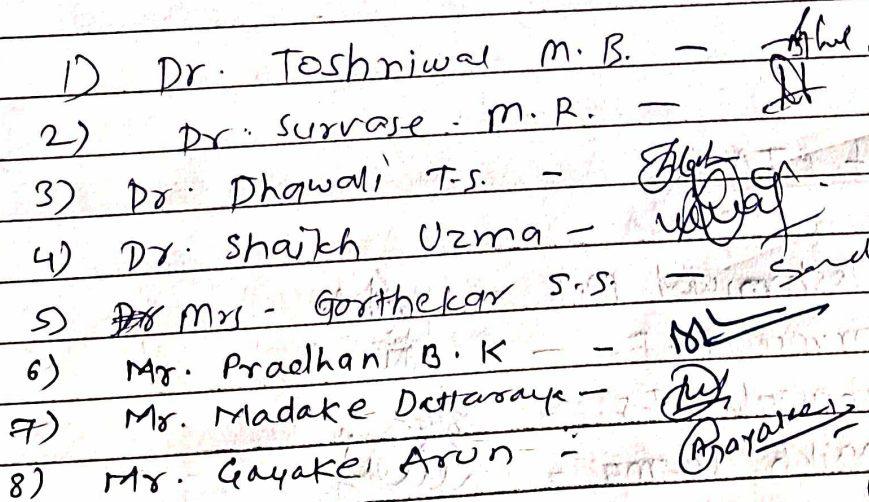 1) Dr. Toshniwal M. B. -
2) Dr. Survase. M. R. -
3) Dr. Dhawali T.S. -
4) Dr. Shaikh Uzma -
5) Mrs - Gorthekar S.S. -
6) Mr. Pradhan B. K - -
7) Mr. Madake Dattaraya -
8) Mr. Gayake Arun -